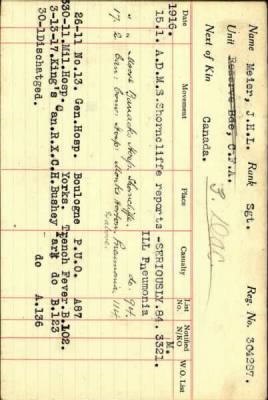 Name Meier, J.H.L. Rank Sgt. Reg. No. 304287.
Unit Reserve Bde, C.F.A.
Next of Kin Canada.
Date Movement Place Casualty List No. Notified N/KO W.O. List
1916. M.
15.1. A.D.M.S. Shorncliffe reports -SERIOUSLY. 84. 3321.
ILL Pneumonia
" " Moore Barracks Hosp. Shorncliffe. do 94.
17.2 Can: Conv: Hosp: Monks Horton. Pneumonia 114.
26-11 No.13. Gen.Hosp. Boulogne P.U.O. A87
30-11. Mil.Hosp. Yorks. Trench Fever. B.102.
3-13-17. King's Can.R.X.C.H. Bushey Park do B.123
30-1 Discharged. do A.136